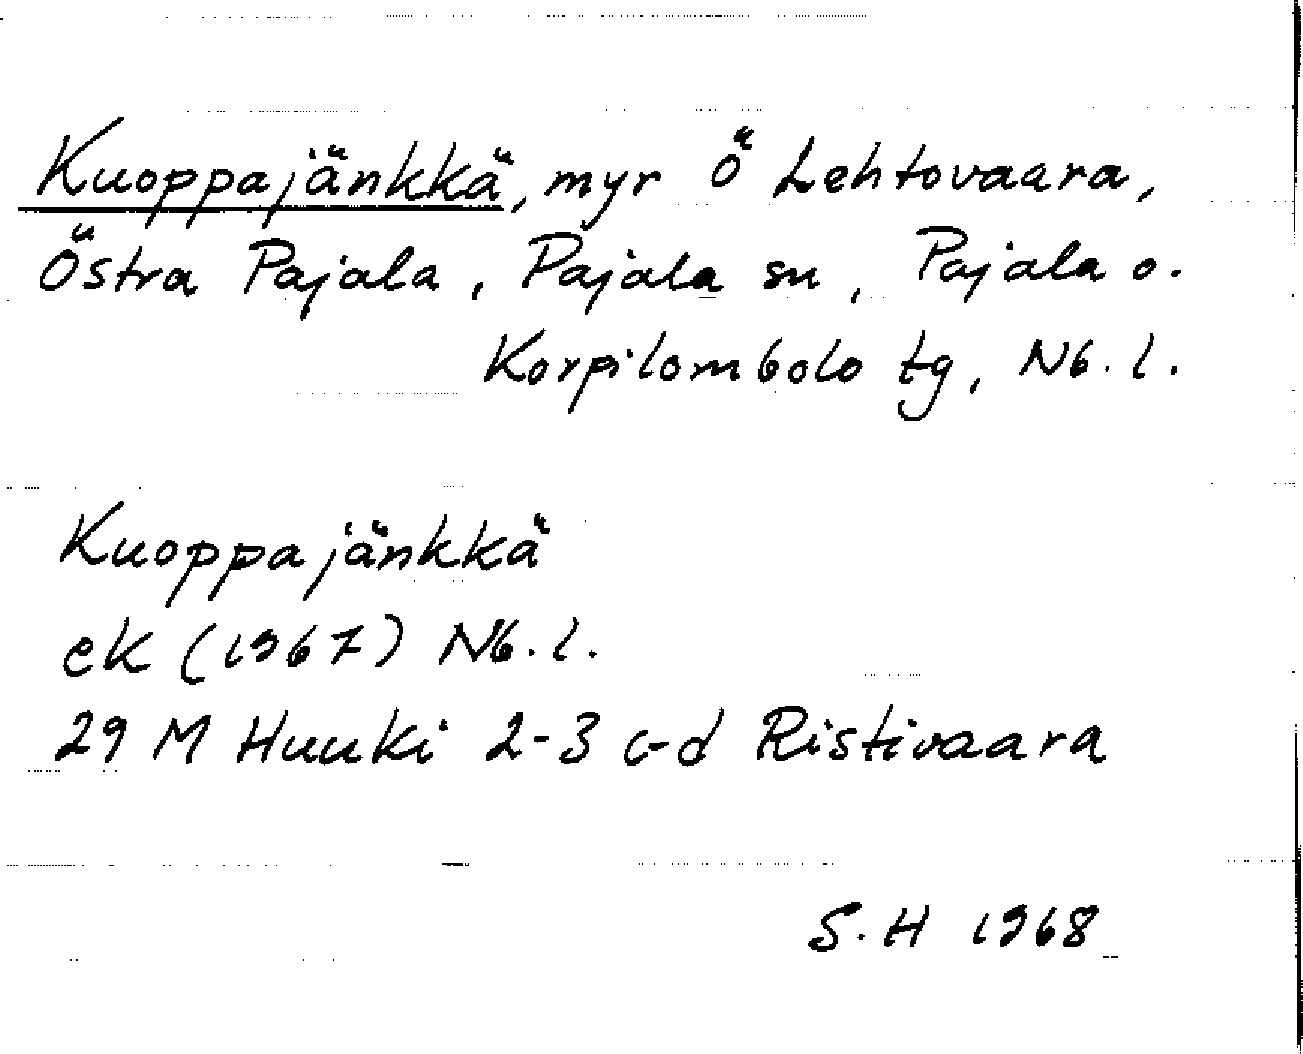 Kuoppajänkkä, myr Ö Lehtovaara,
Östra Pajala, Pajala sn, Pajala o.
Korpilombolo tg, Nb. l.
Kuoppajänkkä
ek (1967) Nb. l.
29 M Huuki 2-3 c-d Ristivaara
S. H 1968